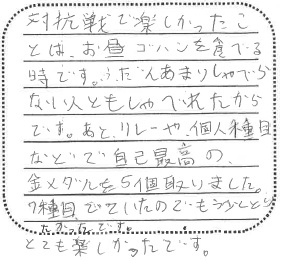 対抗戦で楽しかったこ
とは、お昼ゴハンを食べる
時です。ふだんあまりしゃべら
ない人ともしゃべれたから
です。あと、リレーや、個人種目
などで自己最高の、
金メダルを5個取りました。
7種目でていたのでもう少しとり
たかったです。
とても楽しかったです。